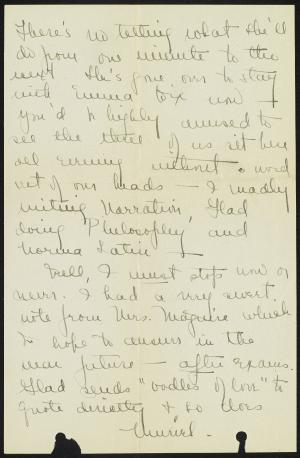 There's no telling what she'll
do from one minute to the
next. She's gone over to stay
with Emma now —
you'd be highly amused to
see the three of us sit here
all evening without a word
out of our heads — I madly
writing Narration, Glad
doing Philosophy and
Norma Latin —
Well, I must stop now or
never. I had a very sweet
note from Mrs. Maguire which
I hope to answer in the
near future — after exams.
Glad sends "oodles of love" to
quote directly & so does
Muriel.